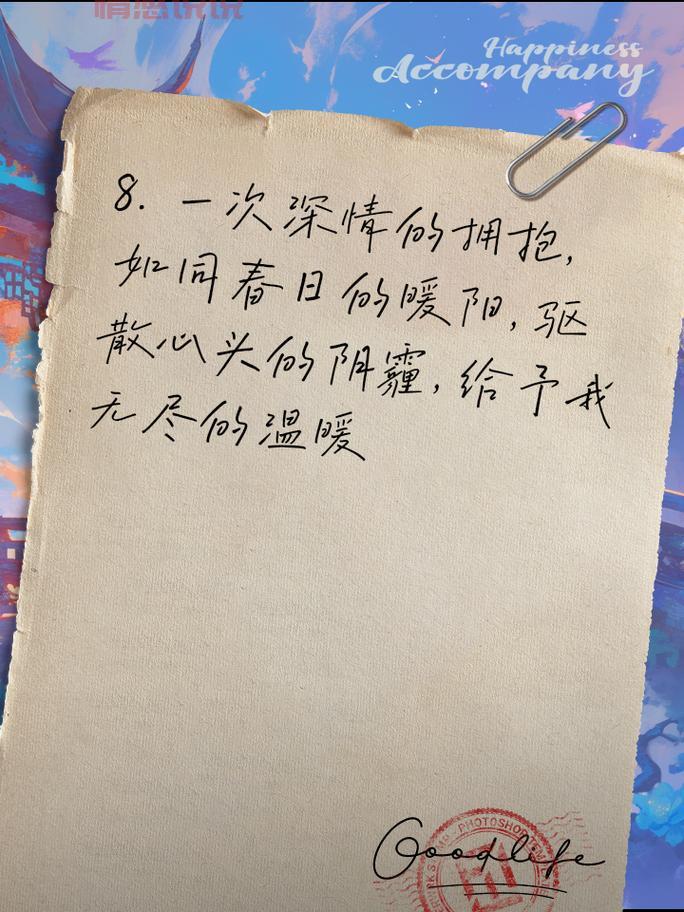 情感说说
Happiness
Accompany
8. 一次深情的拥抱,
如同春日的暖阳,驱
散心头的阴霾,给予我
无尽的温暖
PHOTOSHOP
Goodlife